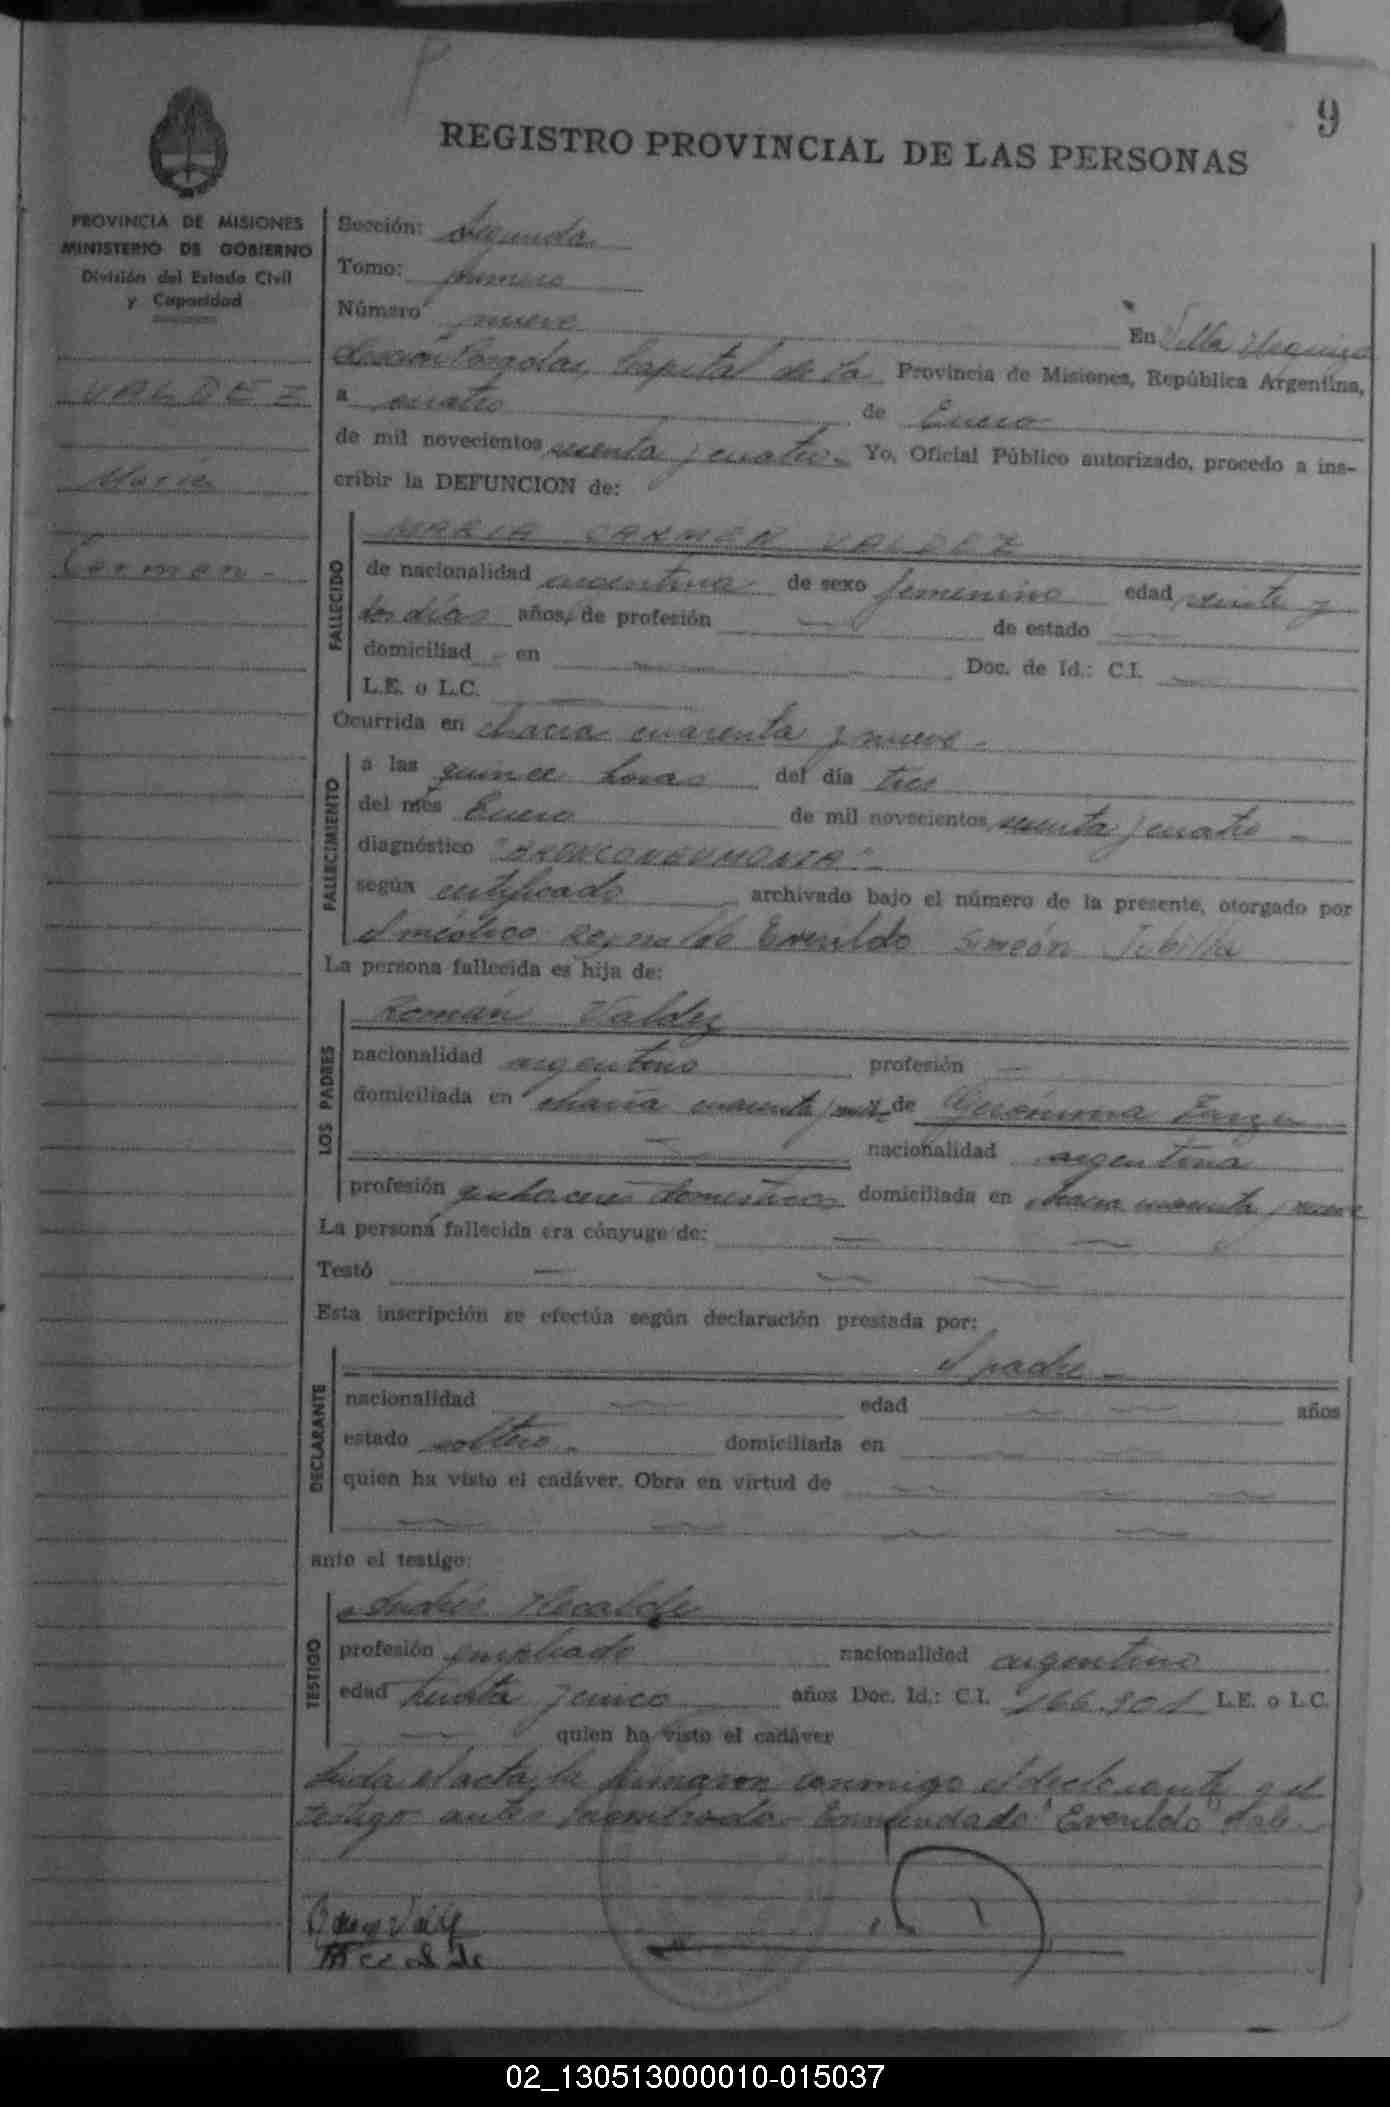 9
REGISTRO PROVINCIAL DE LAS PERSONAS
PROVINCIA DE MISIONES
MINISTERIO DE GOBIERNO
División del Estado Civil
y Capacidad
VALDEZ
María
Carmen-
Sección: Segunda
Tomo: primero
Número nueve
En Villa Urquiza
Sección Posadas, Capital de la Provincia de Misiones, República Argentina,
a cuatro de Enero
de mil novecientos sesenta y cuatro.- Yo, Oficial Público autorizado, procedo a ins-
cribir la DEFUNCION de:
FALLECIDO
MARIA CARMEN VALDEZ
de nacionalidad argentina de sexo femenino edad veinte y
dos días años, de profesión de estado
domiciliad en Doc. de Id.: C.I.
L.E. o L.C.
Ocurrida en chacra cuarenta y nueve-
FALLECIMIENTO
a las quince horas del día tres
del mes Enero de mil novecientos sesenta y cuatro -
diagnóstico "BRONCONEUMONIA"-
según certificado archivado bajo el número de la presente, otorgado por
el médico Reynaldo Everildo Simeón
La persona fallecida es hija de:
LOS PADRES
Román Valdez
nacionalidad argentino profesión
domiciliada en chacra cuarenta y nueve de Gerónima
nacionalidad argentina
profesión quehaceres domésticos domiciliada en chacra cuarenta y nueve
La persona fallecida era cónyuge de:
Testó
Esta inscripción se efectúa según declaración prestada por:
DECLARANTE
el padre-
nacionalidad edad años
estado soltero- domiciliada en
quien ha visto el cadáver. Obra en virtud de
ante el testigo:
TESTIGO
Andrés Recalde
profesión empleado nacionalidad argentino
edad treinta y cinco años Doc. Id.: C.I. 166.901 L.E. o L.C.
quien ha visto el cadáver
Leída el acta, la firmaron conmigo el declarante y el
testigo antes nombrado- Enmendado "Everildo" Vale-